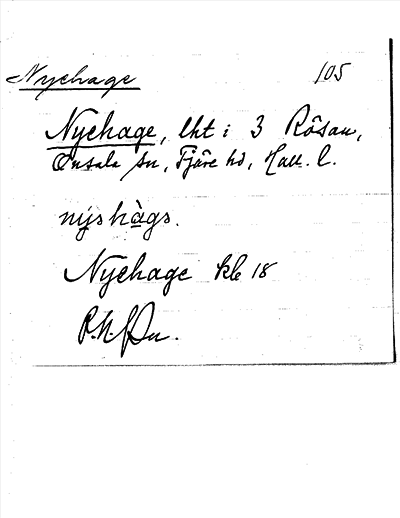 Nyehage 105
Nyehage, lht i 3 Rösan,
Onsala sn, Fjäre hd, Hall. l.
nýshàgs.
Nyehage kb 18